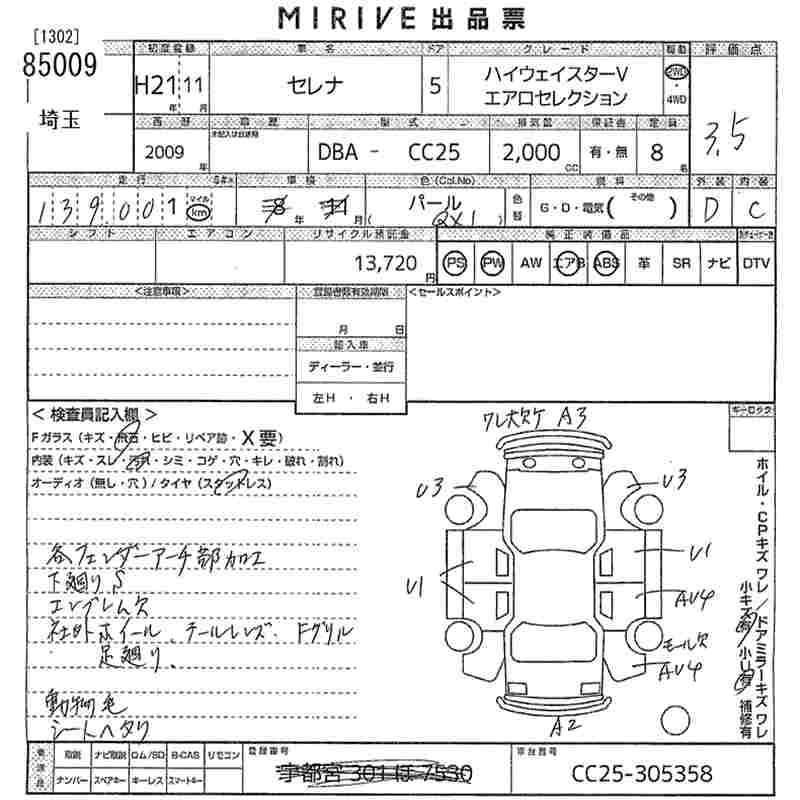 MIRIVE 出品票
[1302]
85009
埼玉
初度登録 車名 ドア グレード 駆動 評価点
H21 11 年 月 セレナ 5 ハイウェイスターV エアロセレクション 2WD ・ 4WD 3.5
西暦 車歴 型式 排気量 保証書 定員
2009 年 DBA - CC25 2,000 CC 有・無 8 名
走行 車検 色(Col.No) 燃料 外装 内装
139,001 マイル km 年 月 パール (QX1) 色替 G・D・電気( その他 ) D C
シフト エアコン リサイクル預託金 純正装備品
13,720 円 PS PW AW エアB ABS 革 SR ナビ DTV
<注意事項> 登録書類有効期限 <セールスポイント>
月 日
輸入車
ディーラー・並行
左H ・ 右H
<検査員記入欄>
キーロッカー
Fガラス (キズ・飛石・ヒビ・リペア跡・X要)
内装 (キズ・スレ・汚れ・シミ・コゲ・穴・キレ・破れ・割れ)
オーディオ (無し・穴) / タイヤ (スタッドレス)
各フェンダーアーチ部加工
下廻りS
エンブレム欠
社外ホイール、テールレンズ、Fグリル
足廻り、
動物毛
シートヘタリ
ワレ大欠ケ A3
U3
U3
U1
U1
AU4
モール欠
AU4
A2
ホイル・CPキズ ワレ / ドアミラーキズ ワレ
小キズ有 / 小U有 補修有
取説 ナビ取説 ロム/SD B-CAS リモコン 登録番号 車台番号
ナンバー スペアキー キーレス スマートキー 宇都宮 301 ほ 7530 CC25-305358